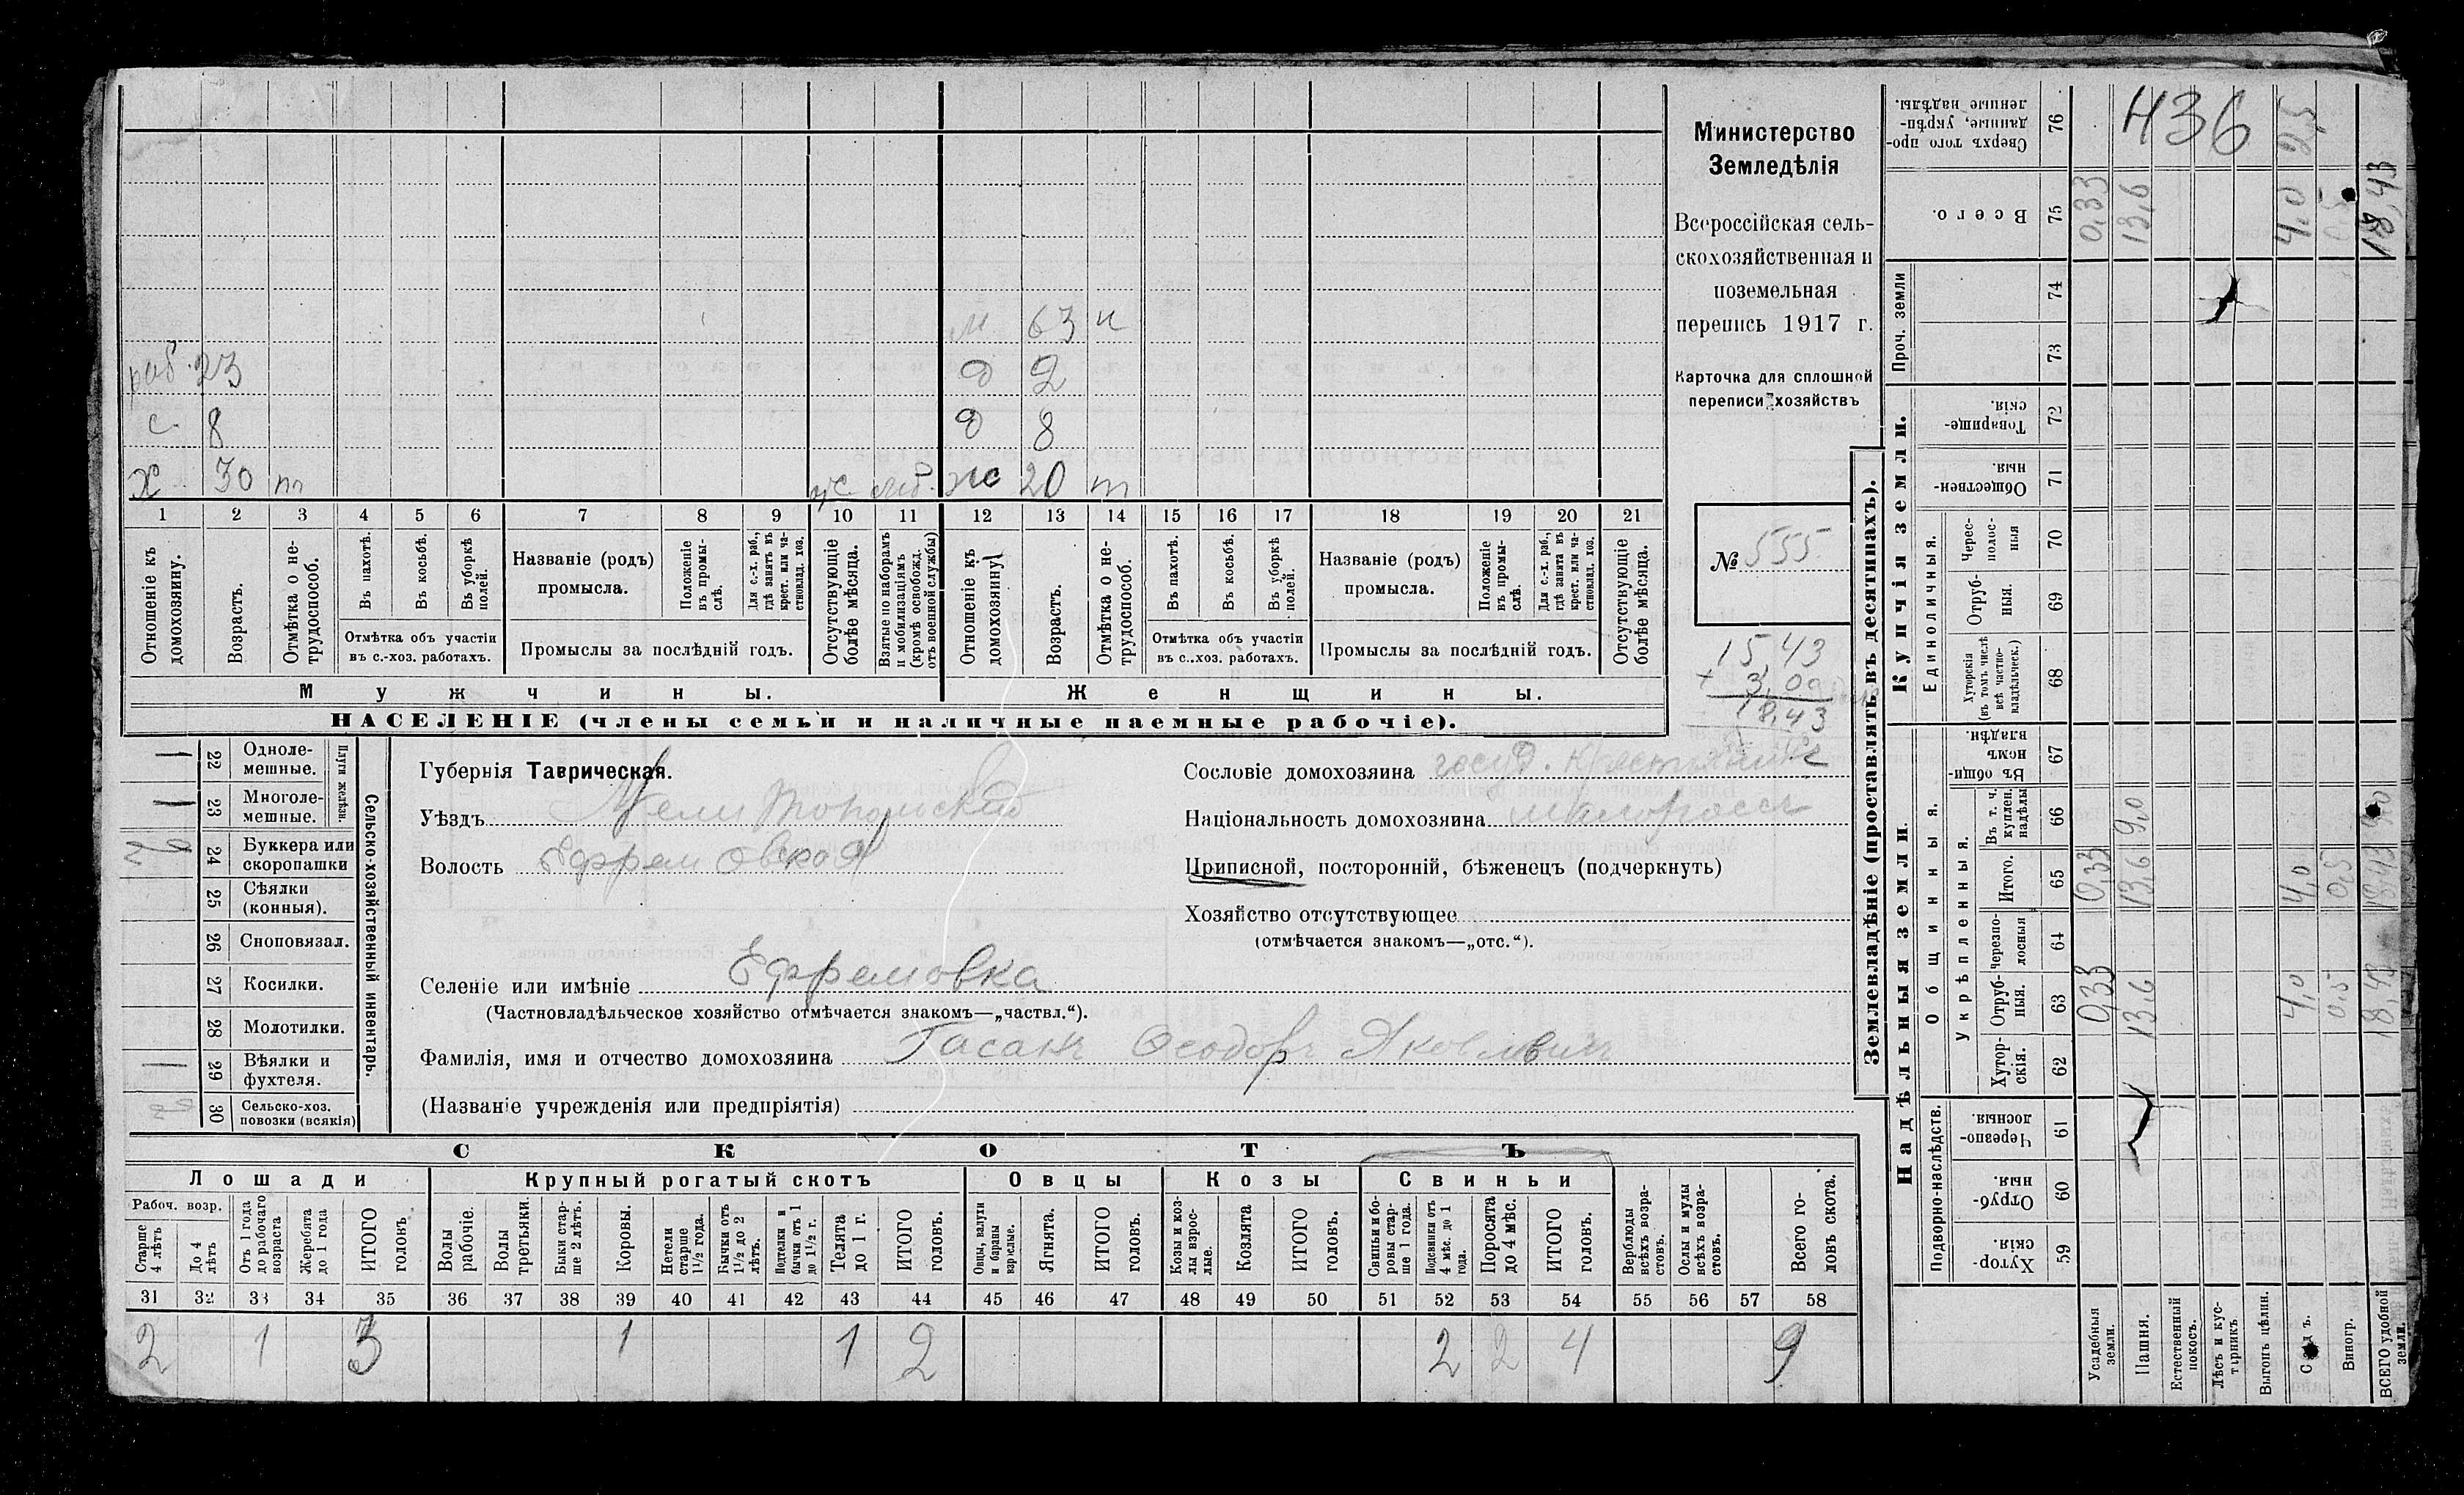 м 63 н
раб. 23 д 2
с. 8 д 8
х 30 т ж 20 т
1 2 3 4 5 6 7 8 9 10 11 12 13 14 15 16 17 18 19 20 21
Отношеніе къ домохозяину.
Возрастъ.
Отмѣтка о не-трудоспособ.
Въ пахотѣ.
Въ косьбѣ.
Въ уборкѣ полей.
Отмѣтка объ участіи въ с.-хоз. работахъ.
Названіе (родъ) промысла.
Положеніе въ промы-слѣ.
Для с.-х. раб., гдѣ занятъ въ крест. или ча-стновлад. хоз.
Промыслы за послѣдній годъ.
Отсутствующіе болѣе мѣсяца.
Взятые по наборамъ и мобилизаціямъ (кромѣ освобожд. отъ военной службы)
Отношеніе къ домохозяину.
Возрастъ.
Отмѣтка о не-трудоспособ.
Въ пахотѣ.
Въ косьбѣ.
Въ уборкѣ полей.
Отмѣтка объ участіи въ с.-хоз. работахъ.
Названіе (родъ) промысла.
Положеніе въ промы-слѣ.
Для с.-х. раб., гдѣ занята въ крест. или ча-стновлад. хоз.
Промыслы за послѣдній годъ.
Отсутствующіе болѣе мѣсяца.
Мужчины.
Женщины.
НАСЕЛЕНІЕ (члены семьи и наличные наемные рабочіе).
Министерство
Земледѣлія
Всероссійская сель-
скохозяйственная и
поземельная
перепись 1917 г.
Карточка для сплошной
переписи хозяйствъ
№ 555
15,43
+ 3,00
18,43
Сельско-хозяйственный инвентарь.
Плуги желѣзн.
22 Одноле-мешные. 1
23 Многоле-мешные. 1
24 Буккера или скоропашки
25 Сѣялки (конныя).
26 Сноповязал.
27 Косилки.
28 Молотилки.
29 Вѣялки и фухтеля. 1
30 Сельско-хоз. повозки (всякія)
Губернія Таврическая.
Уѣздъ Мелитопольскій
Волость Ефремовская
Селеніе или имѣніе Ефремовка
(Частновладѣльческое хозяйство отмѣчается знакомъ—„частвл.“).
Фамилія, имя и отчество домохозяина Гасанъ Ѳеодоръ Яковлевичъ
(Названіе учрежденія или предпріятія)
Сословіе домохозяина госуд. крестьянинъ
Національность домохозяина малороссъ
Приписной, посторонній, бѣженецъ (подчеркнуть)
Хозяйство отсутствующее
(отмѣчается знакомъ—„отс.“).
СКОТЪ
Лошади
Крупный рогатый скотъ
Овцы
Козы
Свиньи
Рабоч. возр.
Старше 4 лѣтъ
До 4 лѣтъ
Отъ 1 года до рабочаго возраста
Жеребята до 1 года
ИТОГО головъ
Волы рабочіе.
Волы третьяки.
Быки стар-ше 2 лѣтъ.
Коровы.
Нетели старше 1½ года.
Бычки отъ 1½ до 2 лѣтъ.
Подтелки и бычки отъ 1 до 1½ г.
Телята до 1 г.
ИТОГО головъ.
Овцы, валухи и бараны взрослые.
Ягнята.
ИТОГО головъ.
Козы и коз-лы взрос-лые.
Козлята
ИТОГО головъ.
Свиньи и бо-ровы стар-ше 1 года.
Подсвинки отъ 4 мѣс. до 1 года.
Поросята до 4 мѣс.
ИТОГО головъ.
Верблюды всѣхъ возра-стовъ.
Ослы и мулы всѣхъ возра-стовъ.
Всего го-ловъ скота.
31 32 33 34 35 36 37 38 39 40 41 42 43 44 45 46 47 48 49 50 51 52 53 54 55 56 57 58
2 1 3 1 1 2 2 2 4 9
Землевладѣніе (проставлять въ десятинахъ).
Надѣльныя земли.
Купчія земли.
Проч. земли
Подворно-наслѣдств.
Общинныя.
Укрѣпленныя.
Единоличныя.
Сверхъ того про-данные, укрѣп-ленные надѣлы. 76 436
Всего. 75 0,33 13,6 4,0 0,5 18,43
74
73
Товарище-скія. 72
Обществен-ныя. 71
Черес-полос-ныя 70
Отруб-ныя. 69
Хуторскія (въ томъ числѣ всѣ частно-владѣльческ.) 68
Въ общин-номъ владѣн. 67
Въ т. ч. куплен. надѣлы 66 9,0 9,0
Итого. 65 0,33 13,6 4,0 0,5 18,43
Черезпо-лосныя 64
Отруб-ныя. 63 0,33 13,6 4,0 0,5 18,43
Хутор-скія. 62
Черезпо-лосныя. 61
Отруб-ныя. 60
Хутор-скія. 59
Усадебныя земли.
Пашня.
Естественный покосъ.
Лѣсъ и кус-тарникъ.
Выгонъ цѣлин.
Садъ.
Виногр.
ВСЕГО удобной земли.